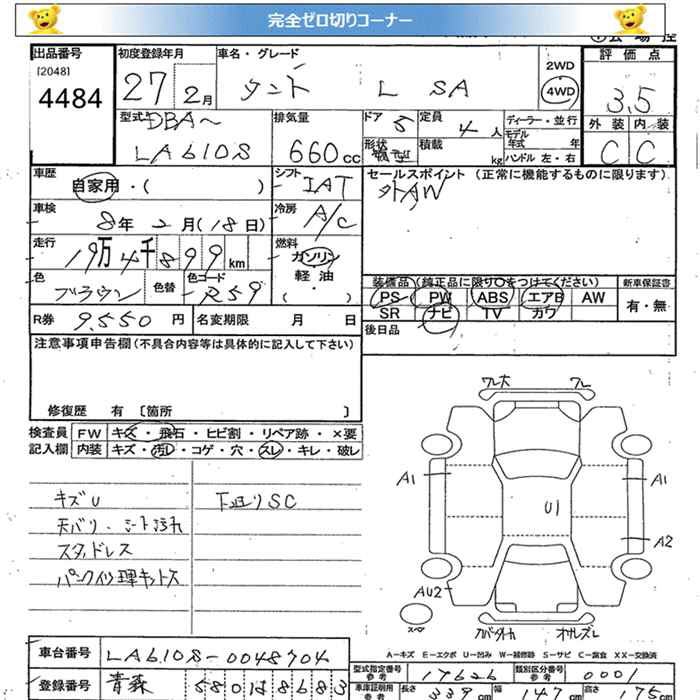 完全ゼロ切りコーナー
出品番号
[2048]
4484
初度登録年月
27 2月
車名・グレード
タント L SA
2WD
4WD
評価点
3.5
外装 内装
C C
型式 DBA〜
LA610S
排気量
660cc
ドア 5
定員 4人
形状
積載 kg
ディーラー・並行
モデル年式 年
ハンドル 左・右
車歴
自家用・( )
シフト
IAT
セールスポイント (正常に機能するものに限ります)
外AW
車検
8年 2月(18日)
冷房
A/C
走行
19万4千899km
燃料
ガソリン
軽油
・( )
色
ブラウン
色替
色コード
R59
装備品 (純正品に限り○をつけてください)
新車保証書
PS PW ABS エアB AW
有・無
SR ナビ TV カワ
R券 9,550円
名変期限 月 日
後日品
注意事項申告欄(不具合内容等は具体的に記入して下さい)
修復歴 有 [箇所 ]
検査員 FW キズ・飛石・ヒビ割・リペア跡・×要
記入欄 内装 キズ・汚レ・コゲ・穴・スレ・キレ・破レ
キズU
下廻りSC
天バリ、シート汚れ
スタッドレス
パンク修理キット
ワレ大 ワレ
A1 A1
U1
A2
AU2
スペア
A=キズ E=エクボ U=凹み W=補修跡 S=サビ C=腐食 XX=交換済
車台番号 LA610S-0048704
登録番号 青森 580 は 8683
型式指定番号 参考 17626
類別区分番号 参考 0001
車庫証明用 参考 長さ 339cm 幅 147cm 高さ 175cm